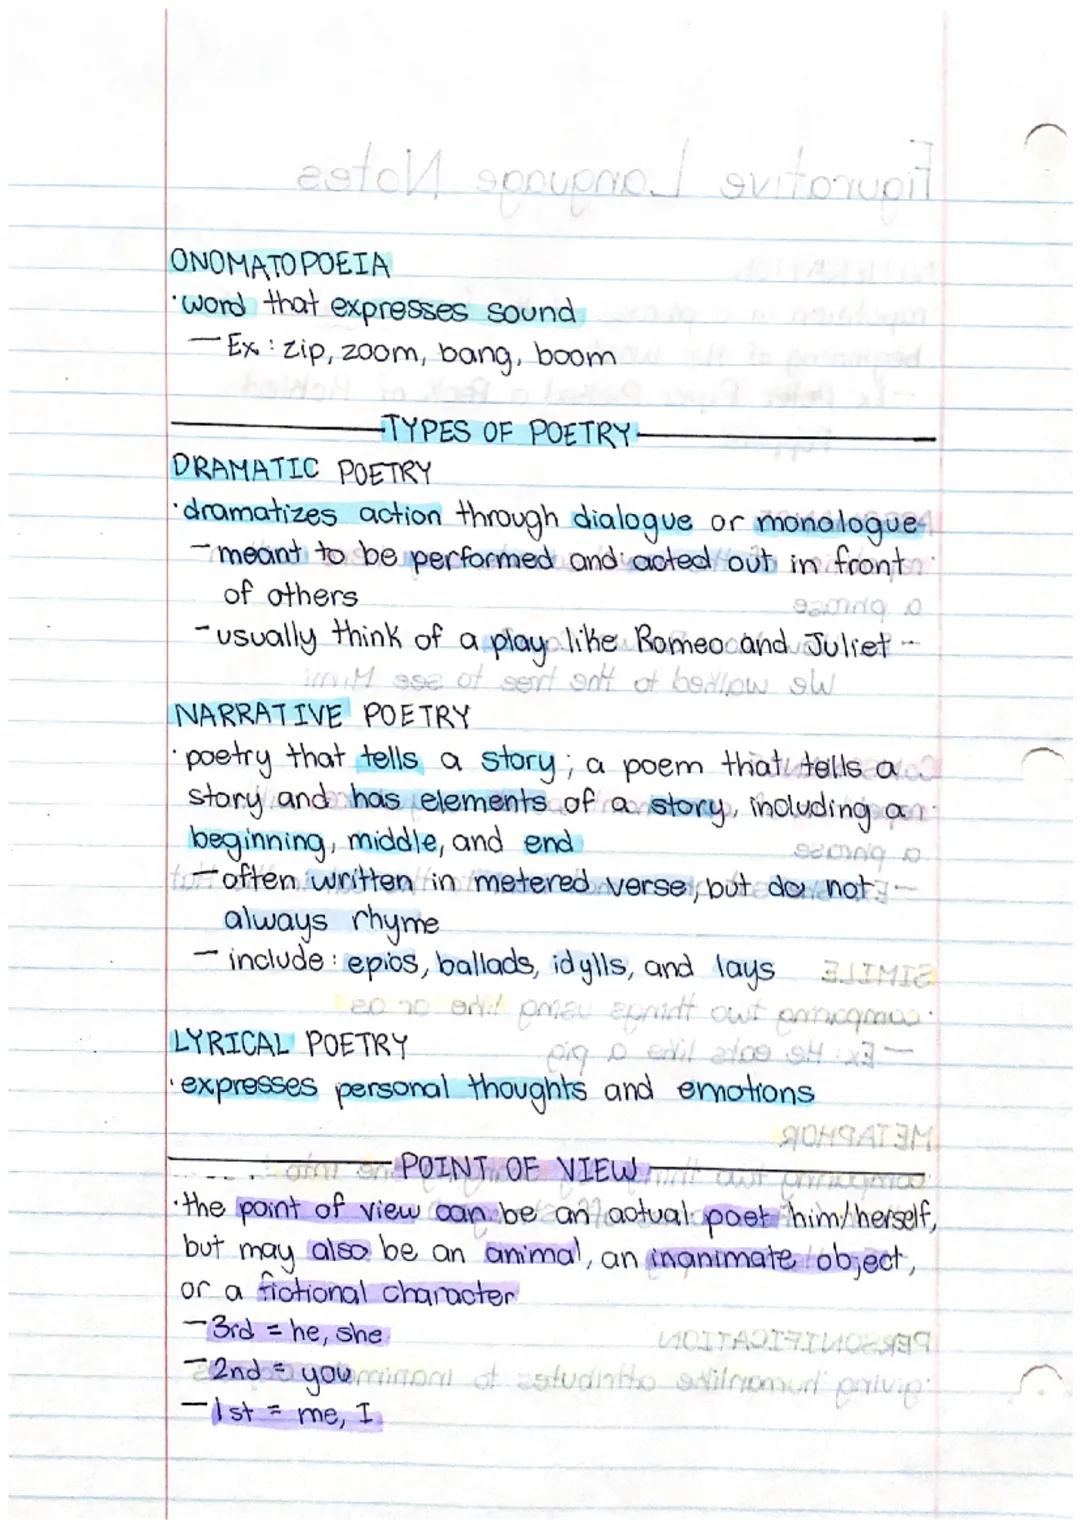 ONOMATOPOEIA
·word that expresses sound
— Ex: zip, zoom, bang, boom
TYPES OF POETRY
DRAMATIC POETRY
·dramatizes action through dialogue or monologue
— meant to be performed and acted out in front
of others
- usually think of a play like Romeo and Juliet
NARRATIVE POETRY
· poetry that tells a story; a poem that tells a
story and has elements of a story, including a
beginning, middle, and end
— often written in metered verse, but do not
always rhyme
— include: epics, ballads, idylls, and lays
LYRICAL POETRY
·expresses personal thoughts and emotions
POINT OF VIEW
·the point of view can be an actual poet him/herself,
but may also be an animal, an inanimate object,
or a fictional character
— 3rd = he, she
— 2nd = you
— 1st = me, I